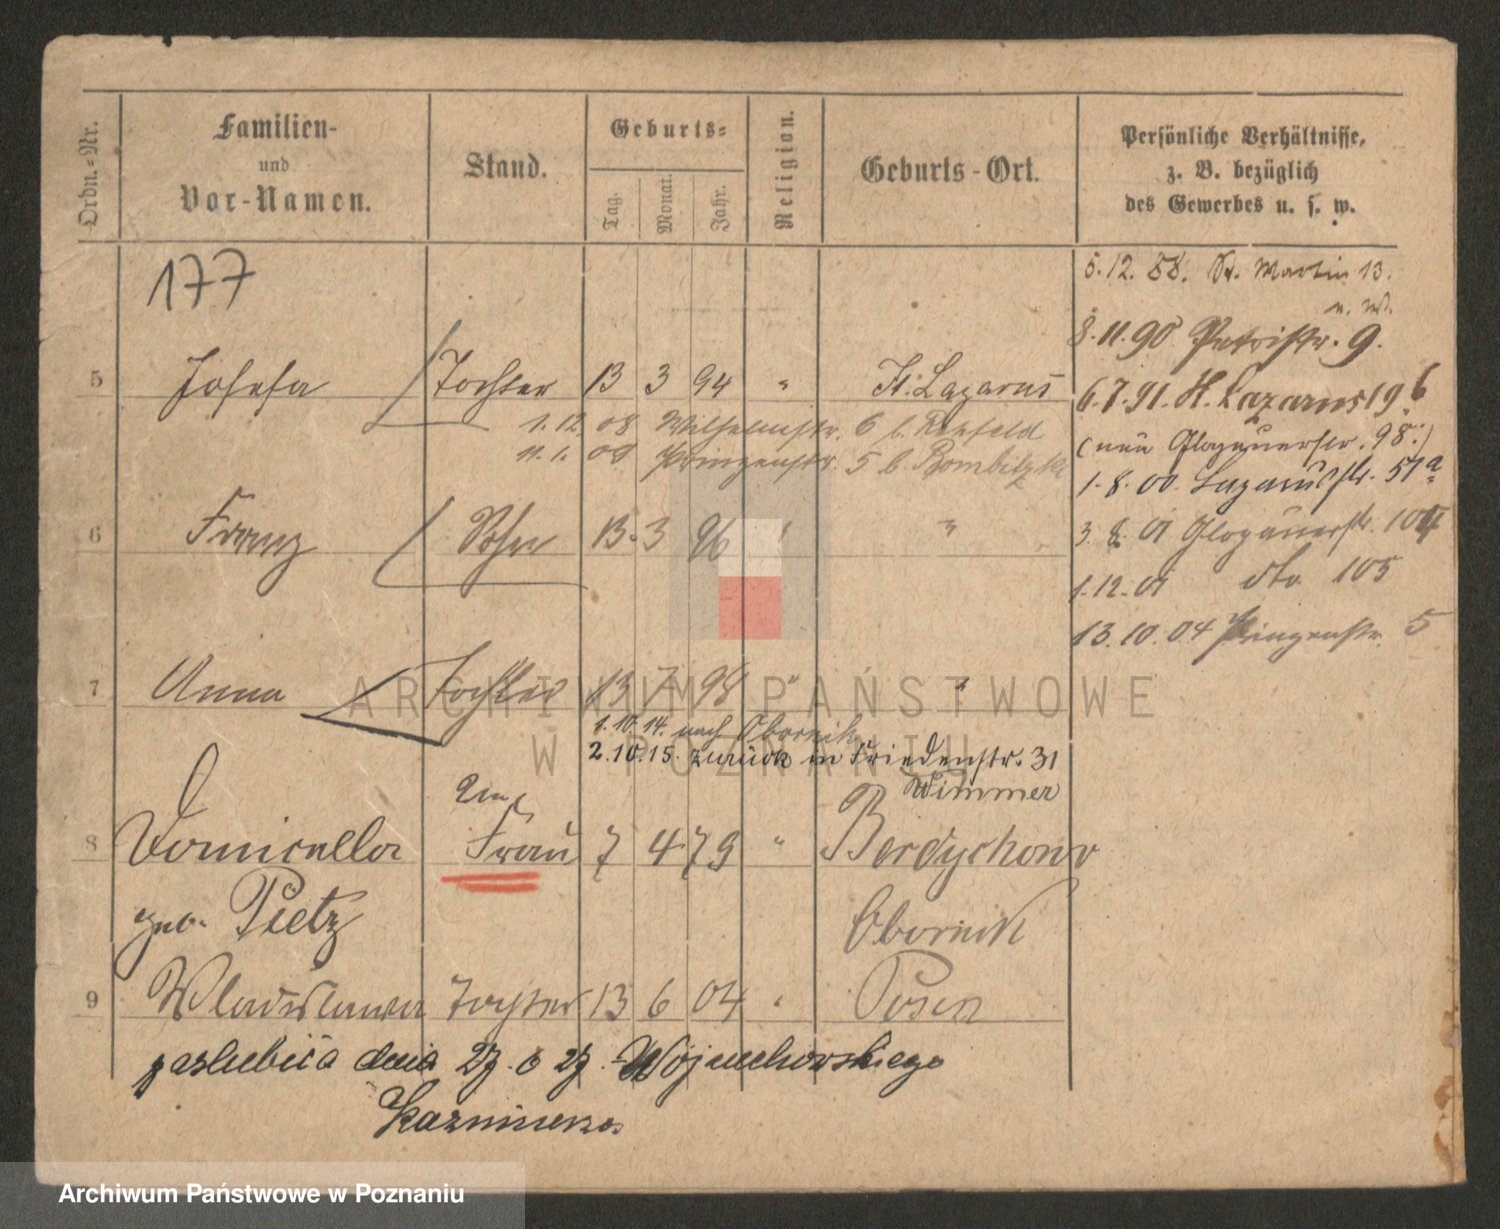 Ordn.-Nr.
Familien-
und
Vor-Namen.
Stand.
Geburts-
Tag.
Monat.
Jahr.
Religion.
Geburts-Ort.
Persönliche Verhältnisse,
z. B. bezüglich
des Gewerbes u. s. w.
177
5.12.88. St. Martin 13.
8.11.90 Petristr. 9.
5 Josefa Tochter 13 3 94 " St. Lazarus
6.7.91. St. Lazarus 19b
1.12.08 Wilhelmstr. 6 b.
(neu Glogauerstr. 98.)
11.1.09 Prinzenstr. 5 b.
1.8.00. Lazarusstr. 51a
6 Franz Sohn 13. 3 96 " "
3.8.01 Glogauerstr. 104
1.12.01 dto 105
13.10.04 Prinzenstr. 5
7 Anna Tochter 13 7 98 " "
1.10.14. nach Obornik
2.10.15. zurück in Friedenstr. 31
Wimmer
8 Frau 7 4 79 " Berdychowo
geb. Pietz Obornik
9 Wladislawa Tochter 13 6 04 " Posen
zaslubiła dnia 27.6 27. Wojciechowskiego
Kazmierza
ARCHIWUM PAŃSTWOWE
W POZNANIU
Archiwum Państwowe w Poznaniu